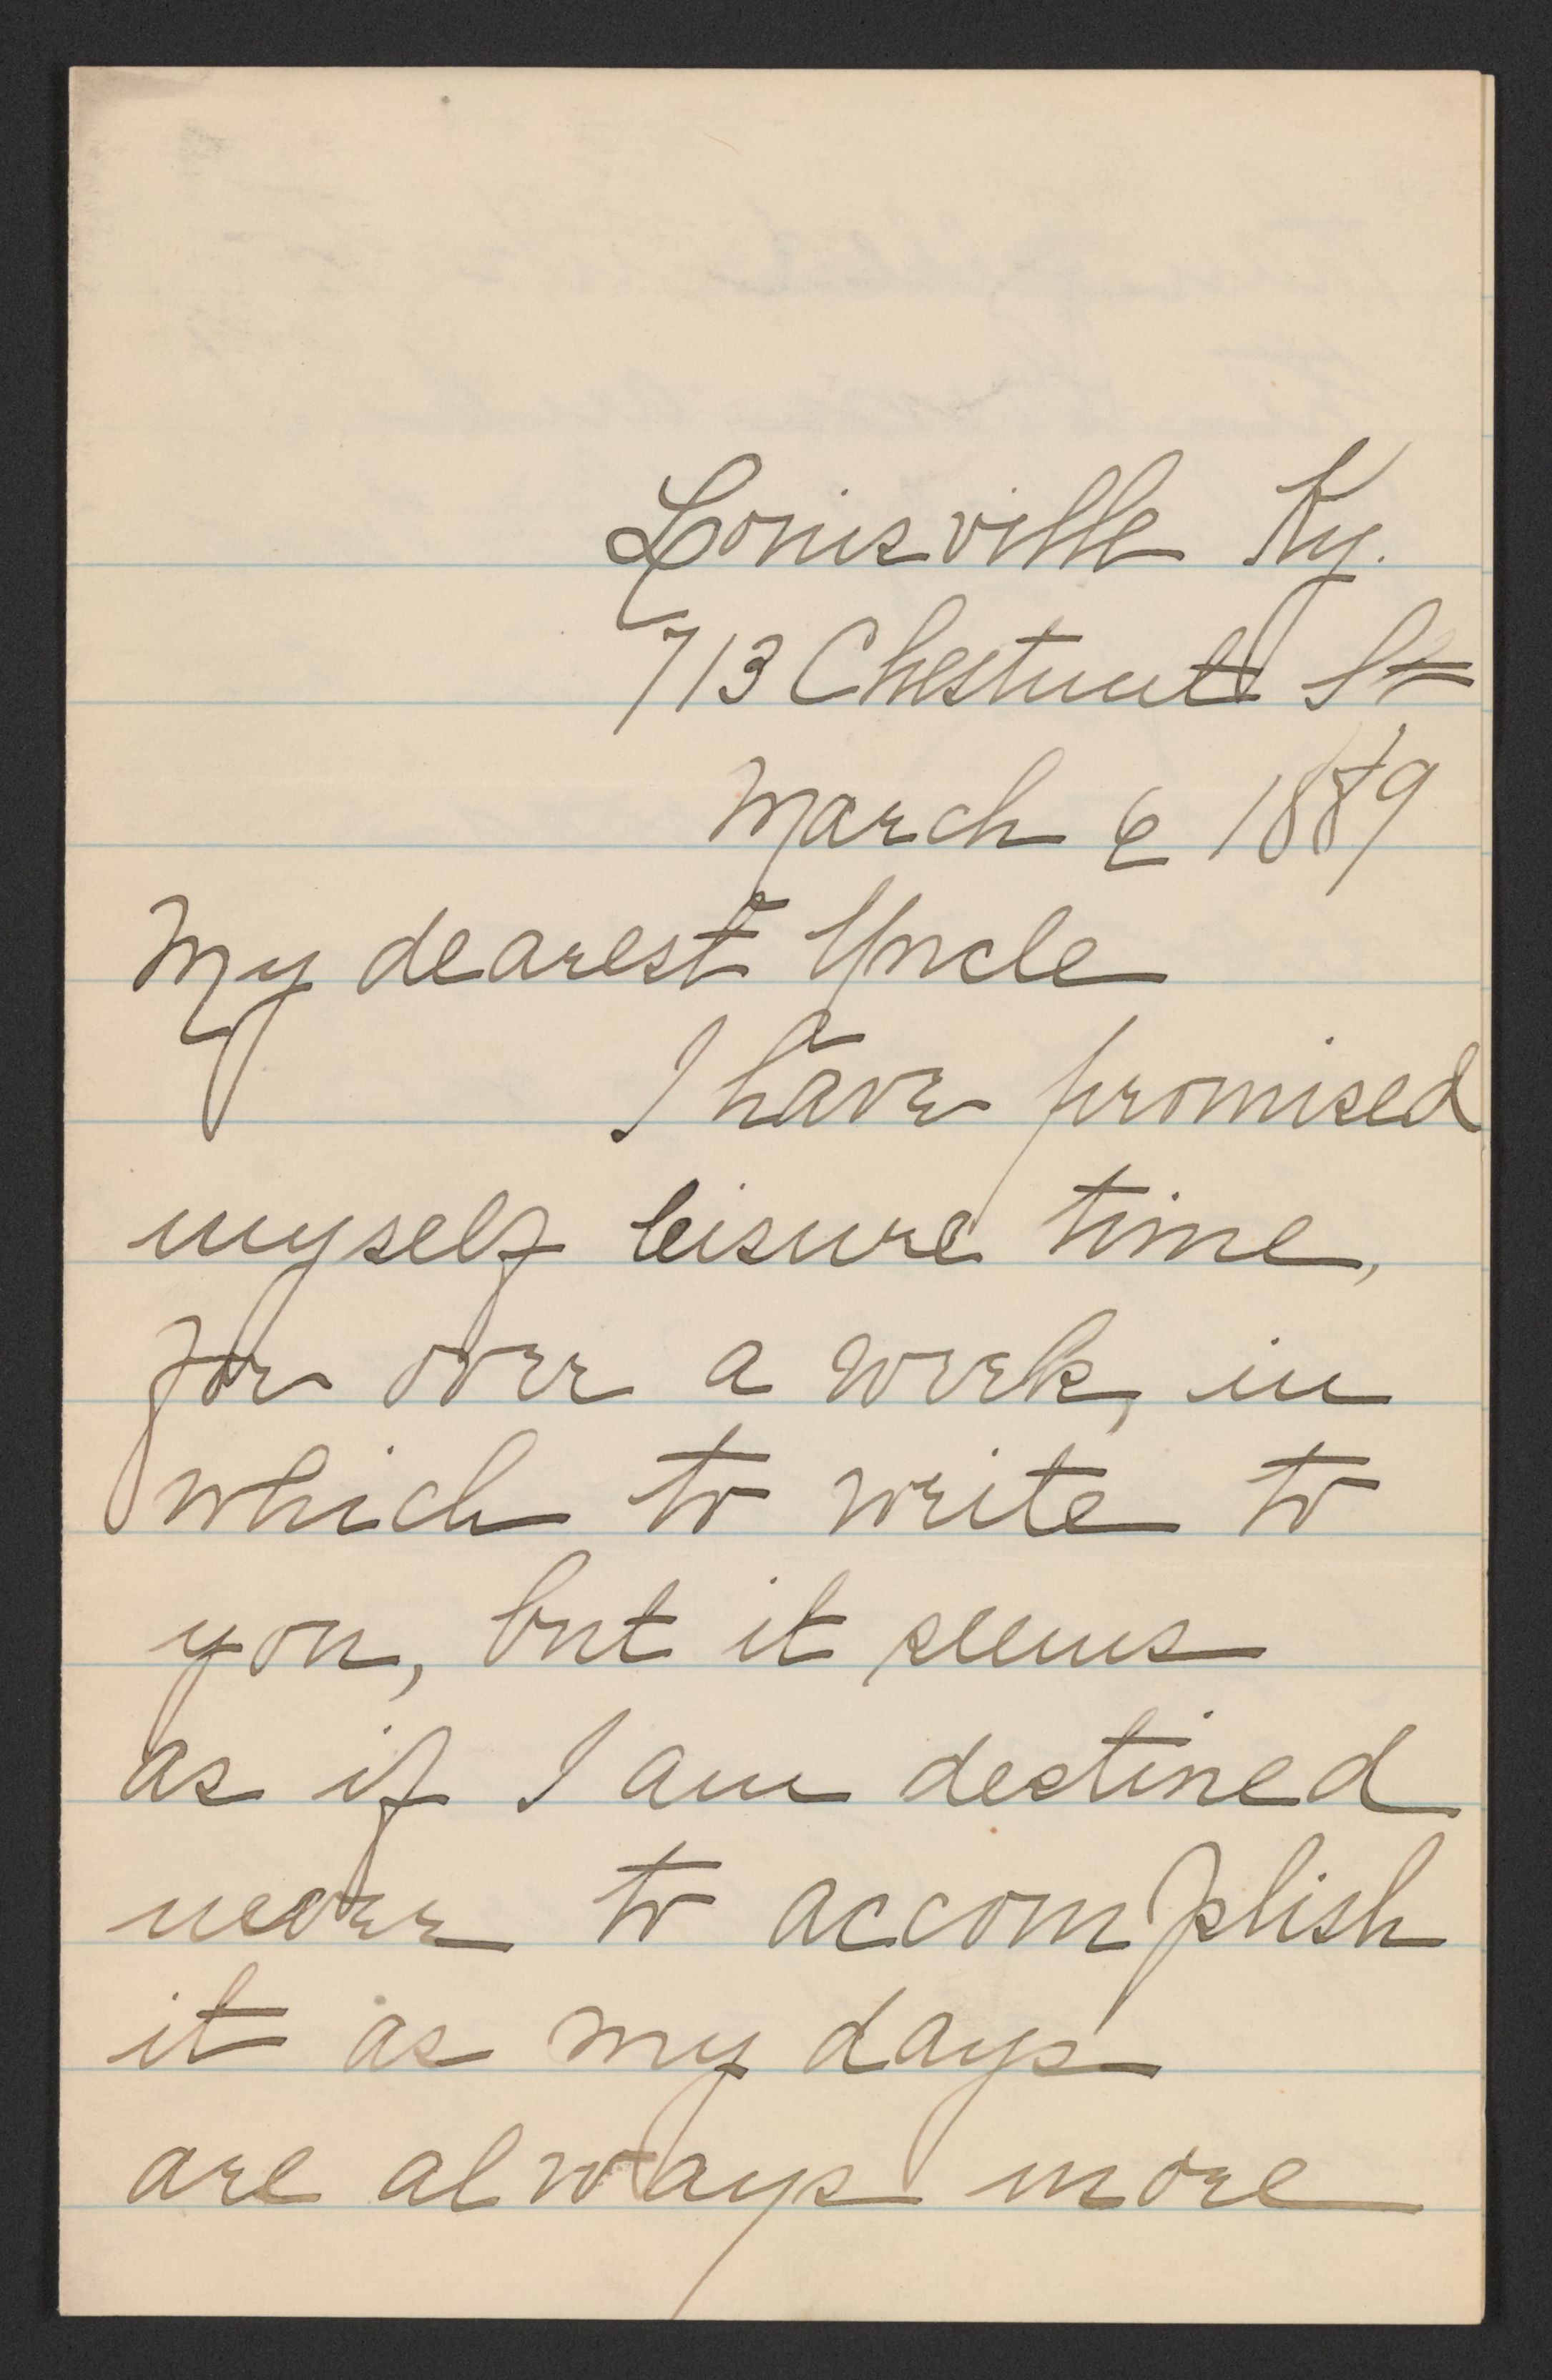 Louisville Ky.
713 Chestnut St
March 6 1889
My dearest Uncle
I have promised
myself leisure time,
for over a week, in
which to write to
you, but it seems
as if I am destined
never to accomplish
it as my days
are always more